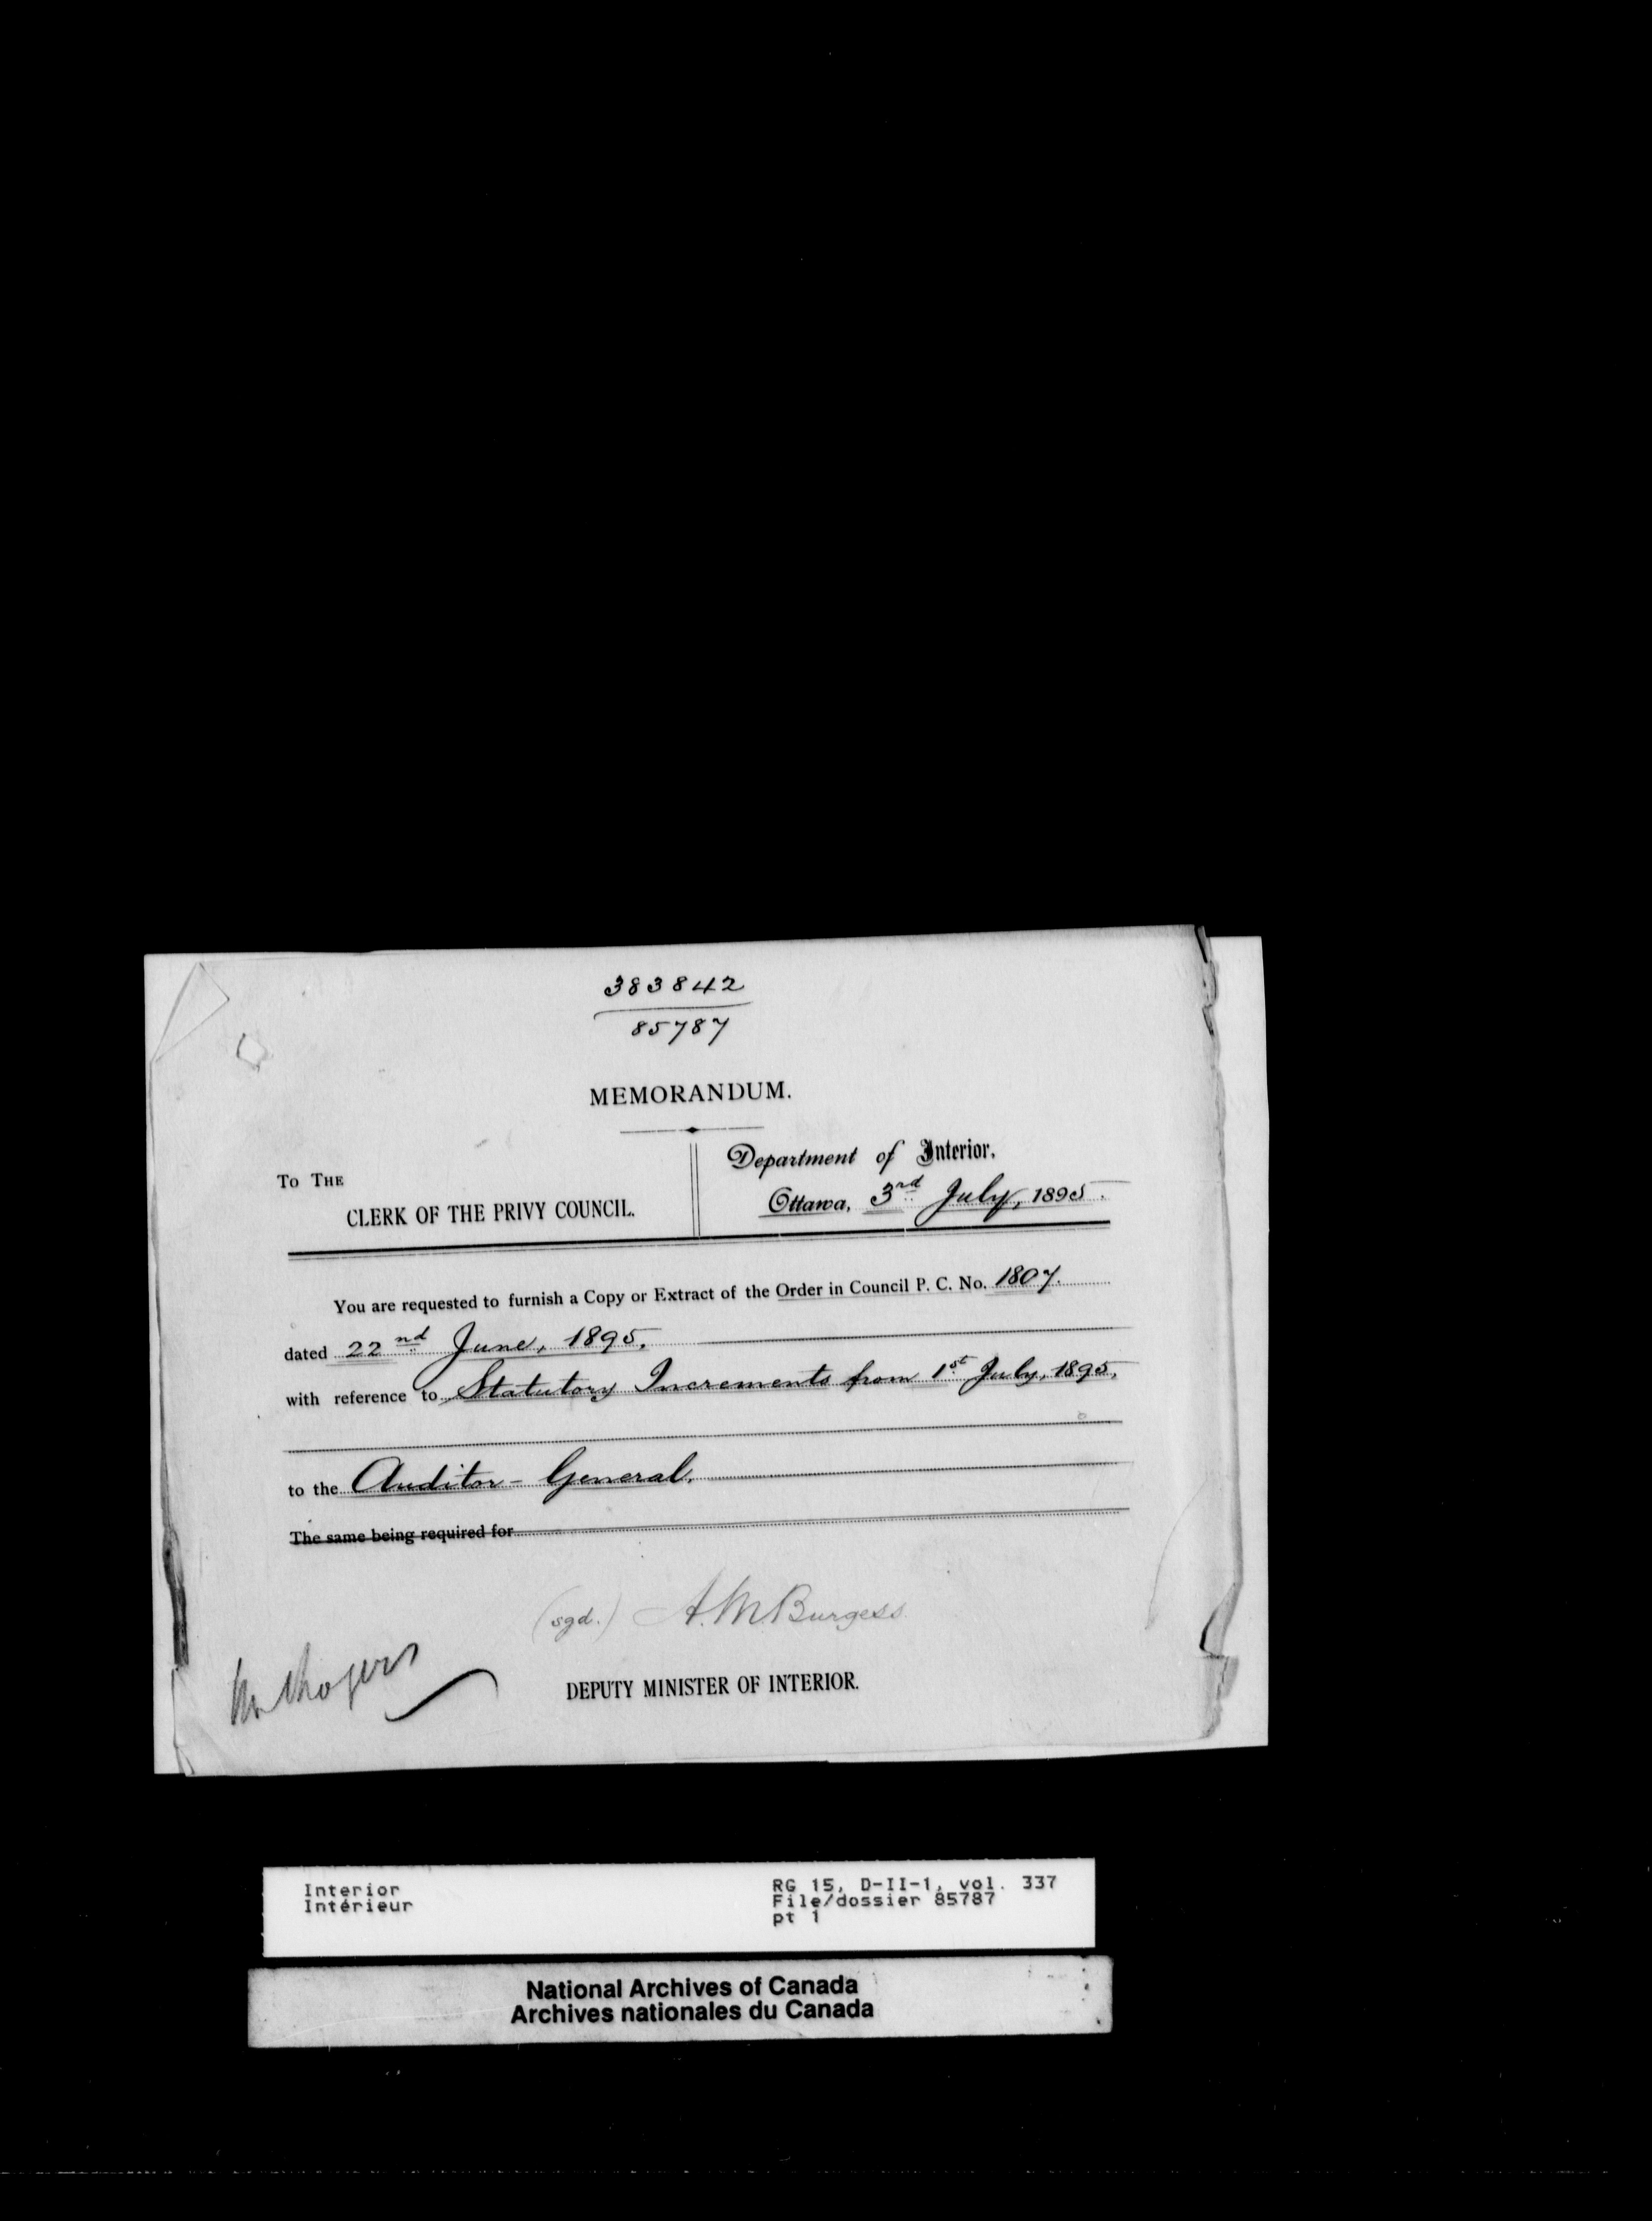 383842
85787
MEMORANDUM.
To The
CLERK OF THE PRIVY COUNCIL.
Department of Interior.
Ottawa, 3rd July, 1895.
You are requested to furnish a Copy or Extract of the Order in Council P. C. No. 1807.
dated 22nd June, 1895.
with reference to Statutory Increments from 1st July, 1895.
to the Auditor-General.
The same being required for
(sgd.) A. M. Burgess
DEPUTY MINISTER OF INTERIOR.
Interior
Intérieur
RG 15, D-II-1, vol. 337
File/dossier 85787
pt 1
National Archives of Canada
Archives nationales du Canada